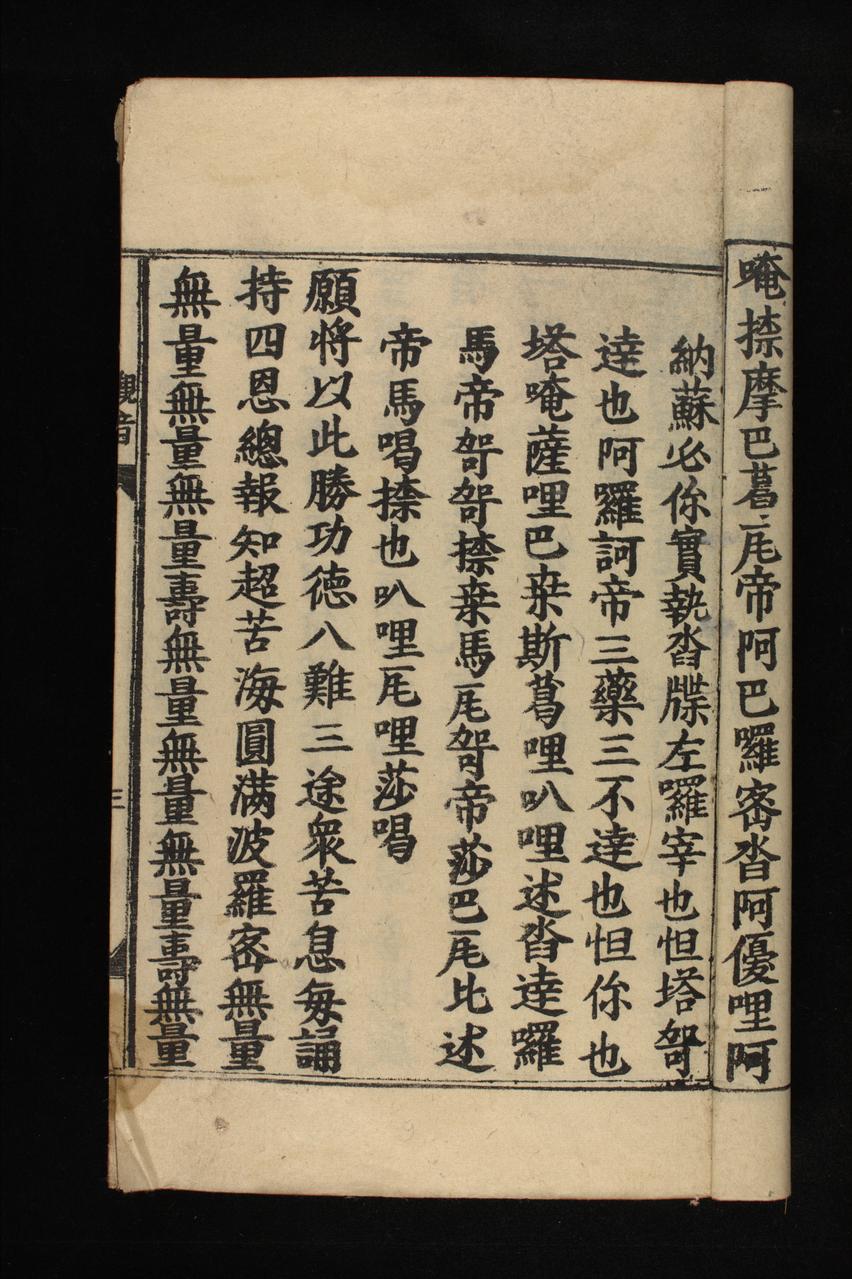 唵捺摩巴葛瓦帝阿巴囉密沓阿優哩阿
納蘇必你實執沓牒左囉宰也怛塔
達也阿囉訶帝三藥三不達也怛你也
塔唵薩哩巴桒斯葛哩叭哩述沓達囉
馬帝哿哿捺桒馬瓦哿帝莎巴瓦比述
帝馬喝捺也叭哩瓦哩莎喝
願將以此勝功德八難三途衆苦息每誦
持四恩總報知超苦海圓滿波羅密無量
無量無量無量壽無量無量無量壽無量
觀音
三